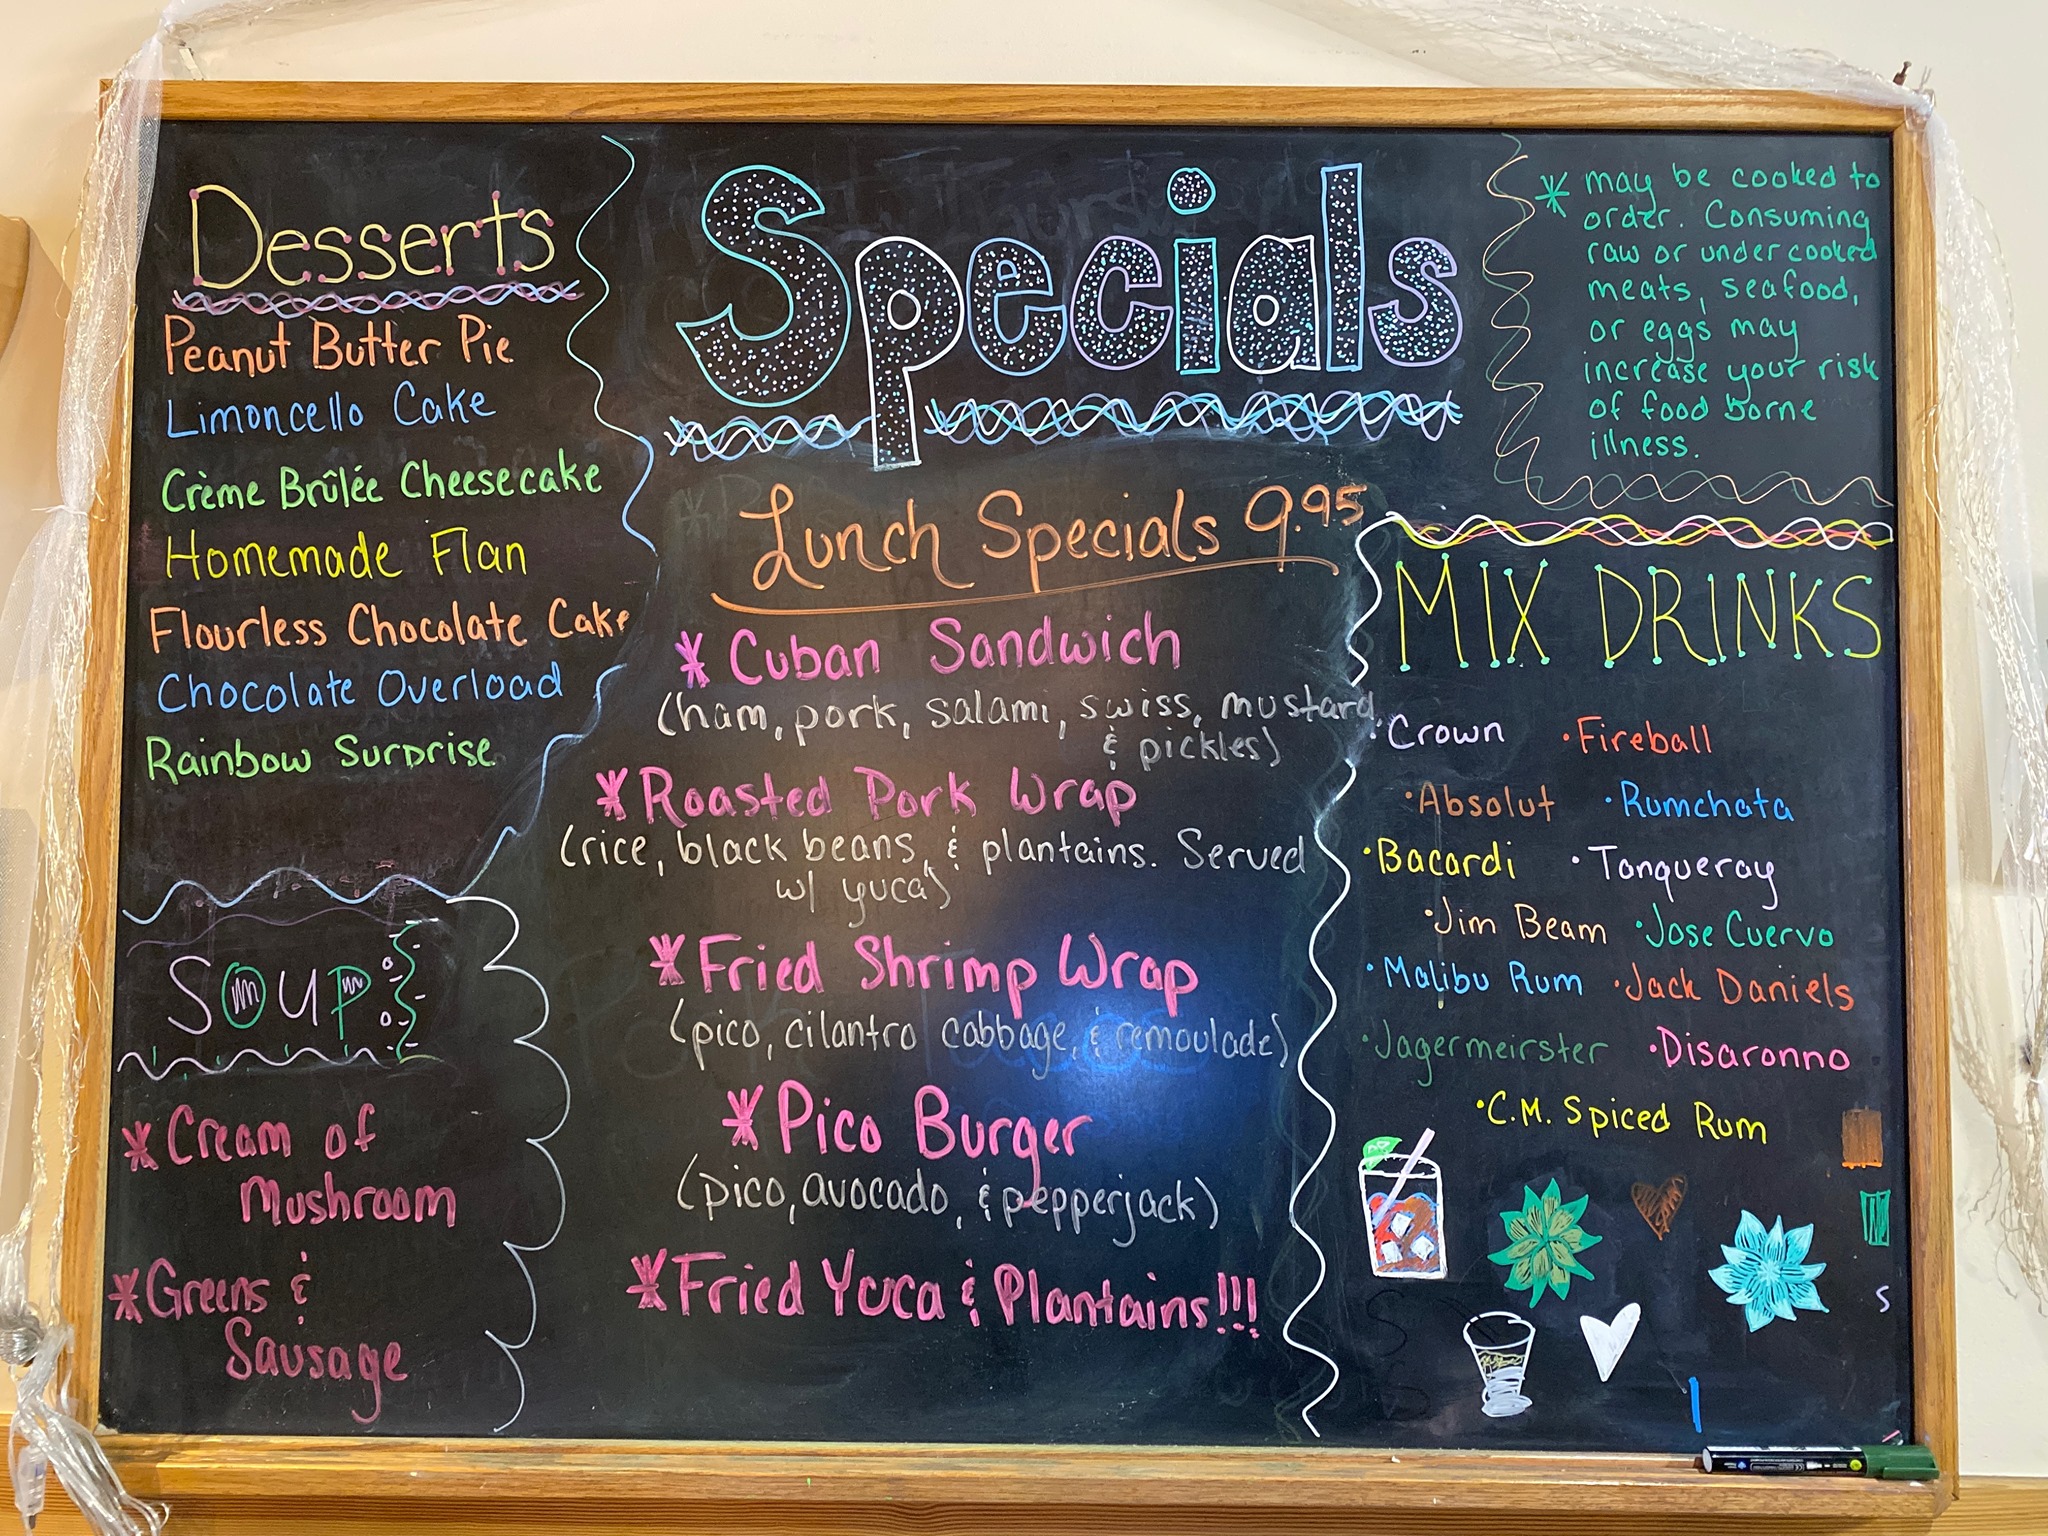 Desserts
Peanut Butter Pie
Limoncello Cake
Crème Brûlée Cheesecake
Homemade Flan
Flourless Chocolate Cake
Chocolate Overload
Rainbow Surprise
SOUP
* Cream of
Mushroom
* Greens &
Sausage
Specials
Lunch Specials 9.95
* Cuban Sandwich
(ham, pork, salami, swiss, mustard,
& pickles)
* Roasted Pork Wrap
(rice, black beans, & plantains. Served
w/ yuca)
* Fried Shrimp Wrap
(pico, cilantro cabbage, & remoulade)
* Pico Burger
(pico, avocado, & pepperjack)
* Fried Yuca & Plantains!!!
* may be cooked to
order. Consuming
raw or under cooked
meats, seafood,
or eggs may
increase your risk
of food borne
illness.
MIX DRINKS
· Crown · Fireball
· Absolut · Rumchata
· Bacardi · Tanqueray
· Jim Beam · Jose Cuervo
· Malibu Rum · Jack Daniels
· Jagermeirster · Disaronno
· C.M. Spiced Rum
S